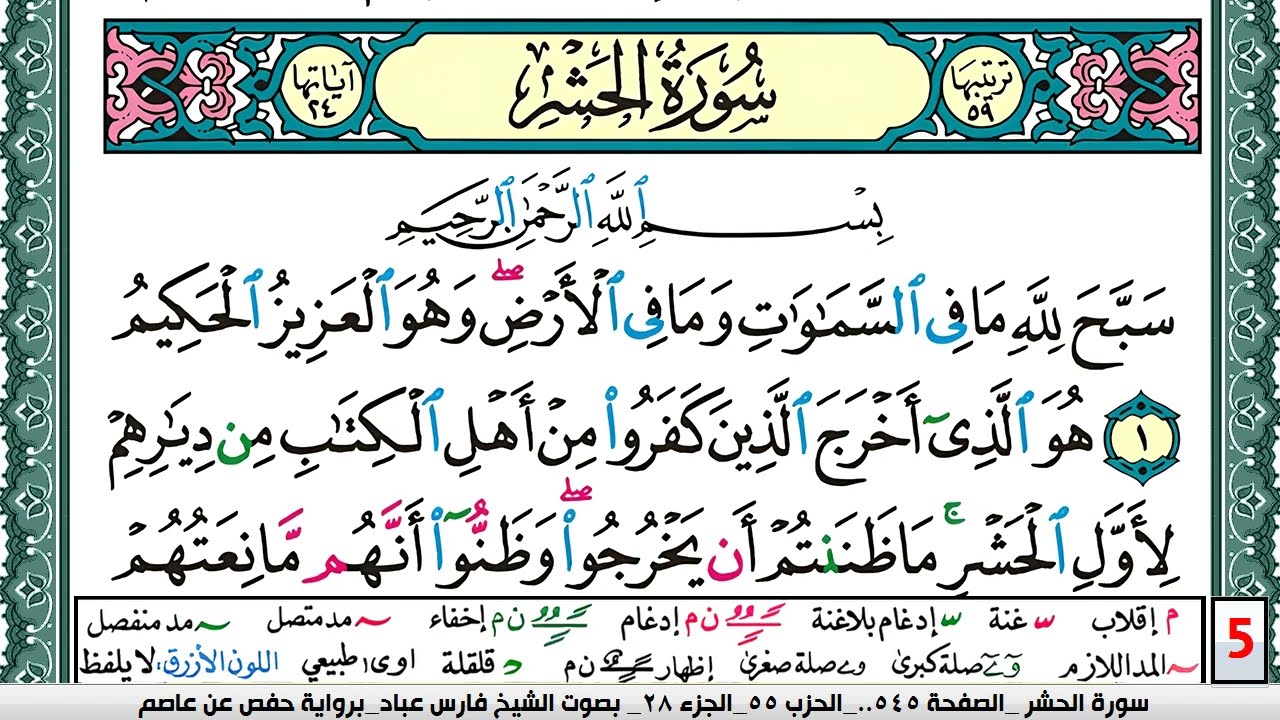 ترتيبها ٥٩
سُورَةُ الحَشْرِ
آياتها ٢٤
بِسْمِ ٱللَّهِ ٱلرَّحْمَٰنِ ٱلرَّحِيمِ
سَبَّحَ لِلَّهِ مَا فِى ٱلسَّمَٰوَٰتِ وَمَا فِى ٱلْأَرْضِ ۖ وَهُوَ ٱلْعَزِيزُ ٱلْحَكِيمُ
١ هُوَ ٱلَّذِىٓ أَخْرَجَ ٱلَّذِينَ كَفَرُوا۟ مِنْ أَهْلِ ٱلْكِتَٰبِ مِن دِيَٰرِهِمْ
لِأَوَّلِ ٱلْحَشْرِ ۚ مَا ظَنَنتُمْ أَن يَخْرُجُوا۟ ۖ وَظَنُّوٓا۟ أَنَّهُم مَّانِعَتُهُمْ
م إقلاب س غنة س إدغام بلاغنة ن م إدغام ن م إخفاء ~ مد متصل ~ مد منفصل
~ المد اللازم و ے صلة كبرى و ے صلة صغرى إظهار ن م د قلقلة ا و ى طبيعي اللون الأزرق: لا يلفظ
5
سورة الحشر _الصفحة ٥٤٥.._الحزب ٥٥_الجزء ٢٨_ بصوت الشيخ فارس عباد_برواية حفص عن عاصم